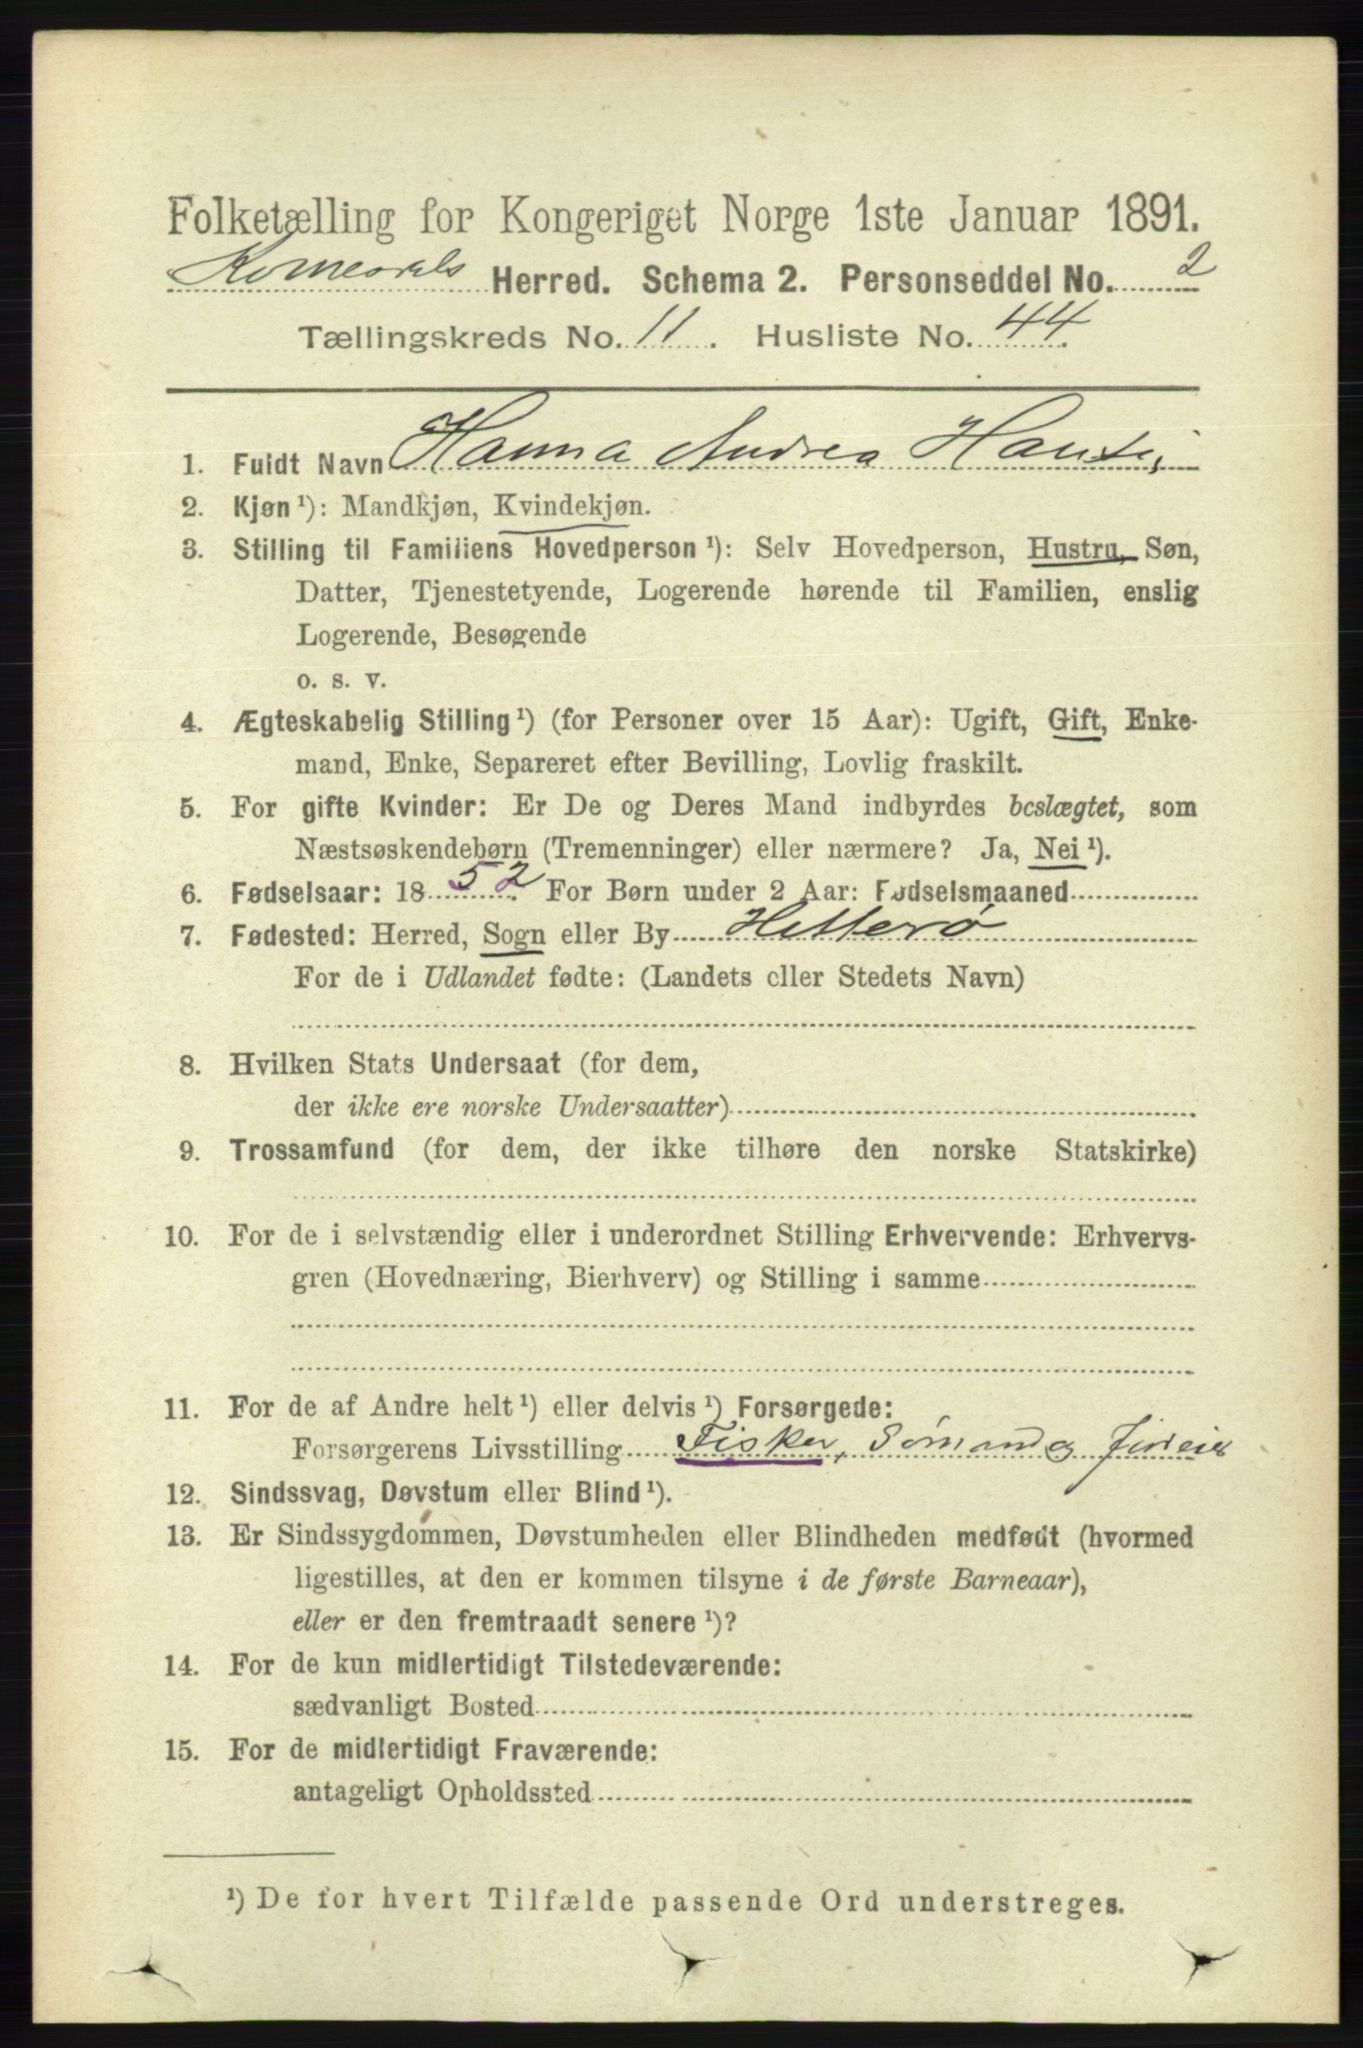 Folketælling for Kongeriget Norge 1ste Januar 1891.
Herred. Schema 2. Personseddel No. 2
Tællingskreds No. 11. Husliste No. 44.
1. Fuldt Navn Hanna Andrea
2. Kjøn ¹): Mandkjøn, Kvindekjøn.
3. Stilling til Familiens Hovedperson ¹): Selv Hovedperson, Hustru, Søn,
Datter, Tjenestetyende, Logerende hørende til Familien, enslig
Logerende, Besøgende
o. s. v.
4. Ægteskabelig Stilling ¹) (for Personer over 15 Aar): Ugift, Gift, Enke-
mand, Enke, Separeret efter Bevilling, Lovlig fraskilt.
5. For gifte Kvinder: Er De og Deres Mand indbyrdes beslægtet, som
Næstsøskendebørn (Tremenninger) eller nærmere? Ja, Nei ¹).
6. Fødselsaar: 1852. For Børn under 2 Aar: Fødselsmaaned
7. Fødested: Herred, Sogn eller By Hitterø
For de i Udlandet fødte: (Landets eller Stedets Navn)
8. Hvilken Stats Undersaat (for dem,
der ikke ere norske Undersaatter)
9. Trossamfund (for dem, der ikke tilhøre den norske Statskirke)
10. For de i selvstændig eller i underordnet Stilling Erhvervende: Erhvervs-
gren (Hovednæring, Bierhverv) og Stilling i samme
11. For de af Andre helt ¹) eller delvis ¹) Forsørgede:
Forsørgerens Livsstilling Fisker, Sømand og
12. Sindssvag, Døvstum eller Blind ¹).
13. Er Sindssygdommen, Døvstumheden eller Blindheden medfødt (hvormed
ligestilles, at den er kommen tilsyne i de første Barneaar),
eller er den fremtraadt senere ¹)?
14. For de kun midlertidigt Tilstedeværende:
sædvanligt Bosted
15. For de midlertidigt Fraværende:
antageligt Opholdssted
¹) De for hvert Tilfælde passende Ord understreges.